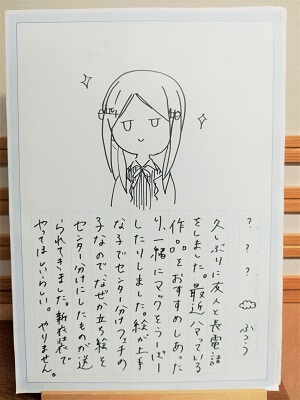 ？？？　ぶっコウ
久しぶりに友人と長電話
をしました。最近ハマっている
作品をおすすめしあった
り、一緒にマックをうーばー
したりしました。絵が上手
な子でセンター分けフェチの
子なのでなぜか立ち絵を
センター分けにしたものが送
られてきました。新衣装で
やってほしいらしい。やりません。